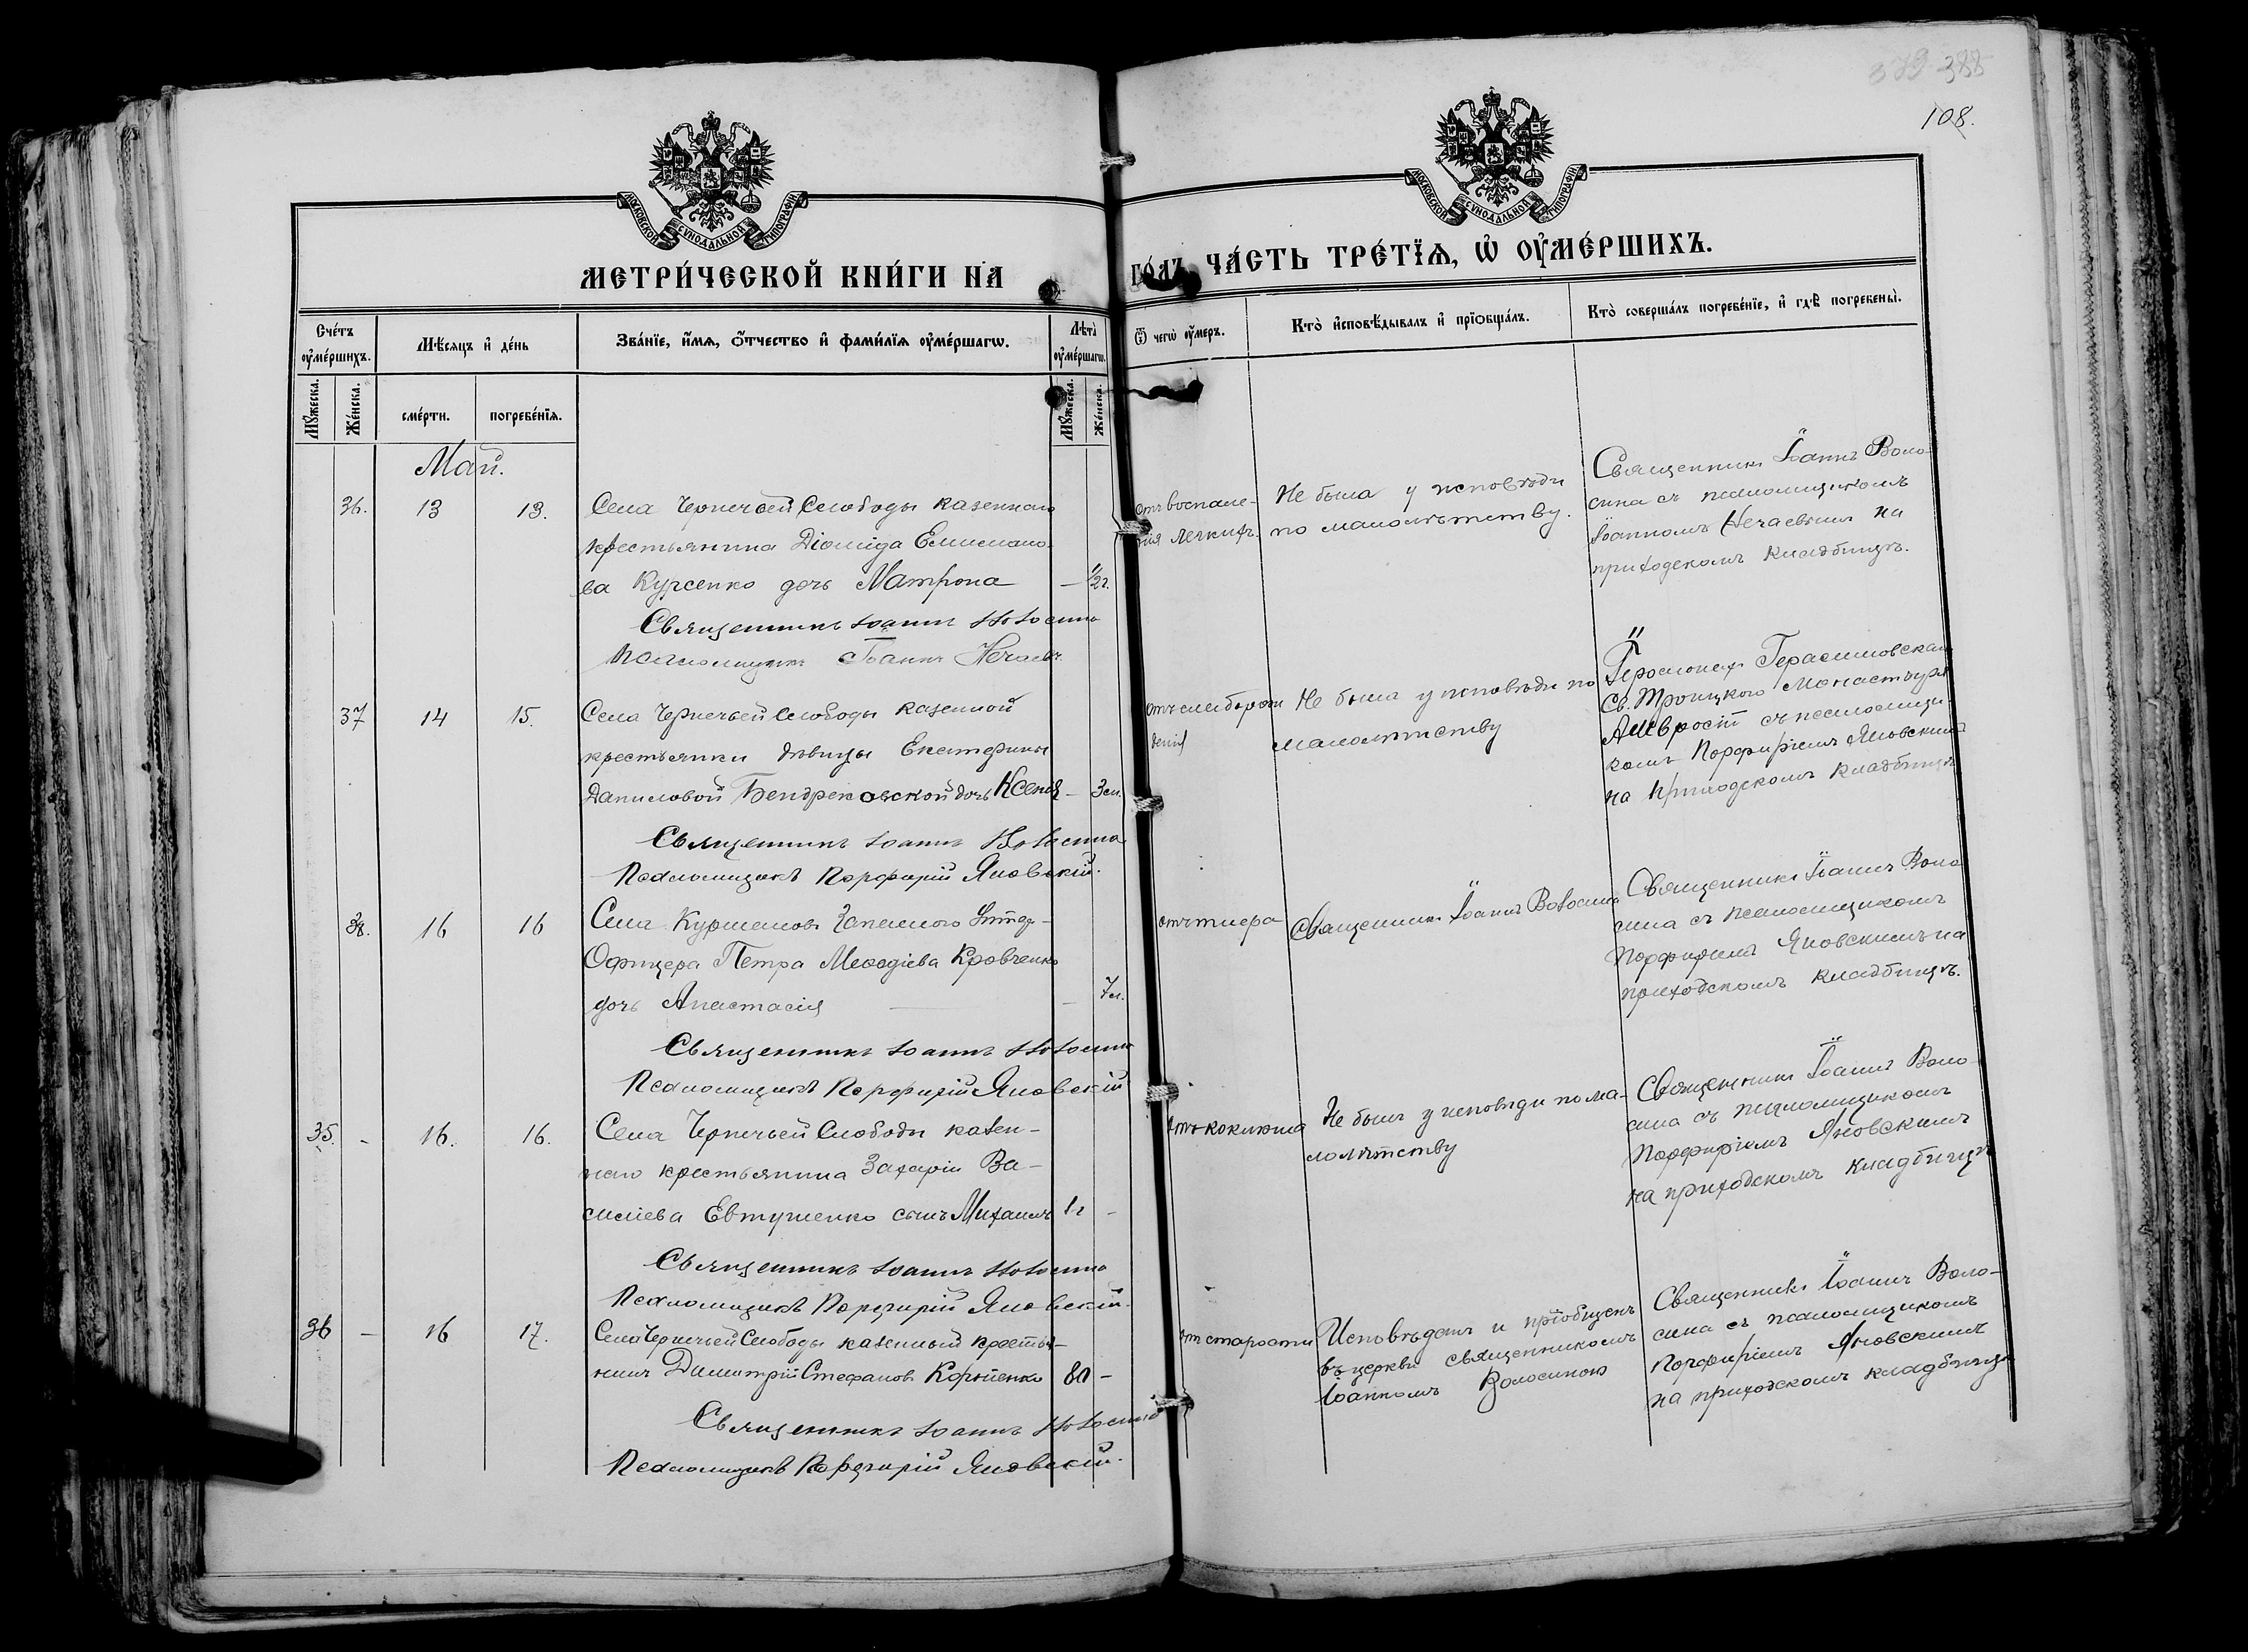 379 388
108.
МОСКОВСКОЙ СѴНОДАЛЬНОЙ ТИПОГРАФІИ
МОСКОВСКОЙ СѴНОДАЛЬНОЙ ТИПОГРАФІИ
МЕТРИ́ЧЕСКОЙ КНИ́ГИ НА
ГО́ДЪ, ЧА́СТЬ ТРЕ́ТЇѦ, Ѡ҆ ОУ҆МЕ́РШИХЪ.
Сче́тъ оу҆ме́ршихъ.
Мѣ́сяцъ и҆ де́нь
Зва́нїе, и҆́мя, ѻ҆́тчество и҆ фами́лїя оу҆ме́ршагѡ.
Лѣта̀ оу҆ме́ршагѡ.
Ѿ чегѡ̀ оу҆́меръ.
Кто̀ и҆сповѣ́дывалъ и҆ прїѻбща́лъ.
Кто̀ соверша́лъ погребе́нїе, и҆ гдѣ̀ погребены̀.
Мꙋ́жеска.
Же́нска.
сме́рти.
погребе́нїя.
Мꙋ́жеска.
Же́нска.
Май.
36.
13
13.
Села Чернечьей Слободы казеннаго
крестьянина Діомида Емилiано-
ва Курсенко дочь Матрона
— ½г.
Священникъ Іоаннъ Волосина
Псаломщикъ Іоаннъ Нечаевъ
отъ воспале-
нія легкихъ.
Не была у исповѣди
по малолѣтству.
Священникъ Іоаннъ Воло-
сина съ псаломщикомъ
Іоанномъ Нечаевымъ на
приходскомъ кладбищѣ.
37
14
15.
Села Чернечьей Слободы казенной
крестьянки дѣвицы Екатерины
Даниловой дочь Ксенія —
Священникъ Іоаннъ Волосина
Псаломщикъ Порфирій Яновскій.
Не была у исповѣди по
малолѣтству
Іеромонахъ Герасимовскаго
Св. Троицкого Монастыря
съ псаломщи-
комъ Порфиріемъ Яновскимъ
на приходскомъ кладбищѣ
38.
16
16
Села запасного Унтеръ-
Офицера Петра Меѳодіева Кровченко
дочь Анастасія — — 7л.
Священникъ Іоаннъ Волосина
Псаломщикъ Порфирій Яновскій
Священникъ Іоаннъ Волосина
Священникъ Іоаннъ Воло-
сина съ псаломщикомъ
Порфиріемъ Яновскимъ на
приходскомъ кладбищѣ.
35.
-
16.
16.
Села Чернечьей Слободы казен-
наго крестьянина Захарія Ва-
силіева Евтушенко сынъ Михаилъ 1г -
Священникъ Іоаннъ Волосина
Псаломщикъ Порфирій Яновскій.
отъ коклюша
Не былъ у исповѣди по ма-
лолѣтству
Священникъ Іоаннъ Воло-
сина съ псаломщикомъ
Порфиріемъ Яновскимъ
на приходскомъ кладбищѣ
36
—
16
17.
Села Чернечьей Слободы казенный крестья-
нинъ Димитрій Стефановъ 80 -
Священникъ Іоаннъ Волосина
Псаломщикъ Порфирій Яновскій.
отъ старости
Исповѣданъ и пріобщенъ
въ церкви священникомъ
Іоанномъ Волосиною
Священникъ Іоаннъ Воло-
сина съ псаломщикомъ
Порфиріемъ Яновскимъ
на приходскомъ кладбищѣ